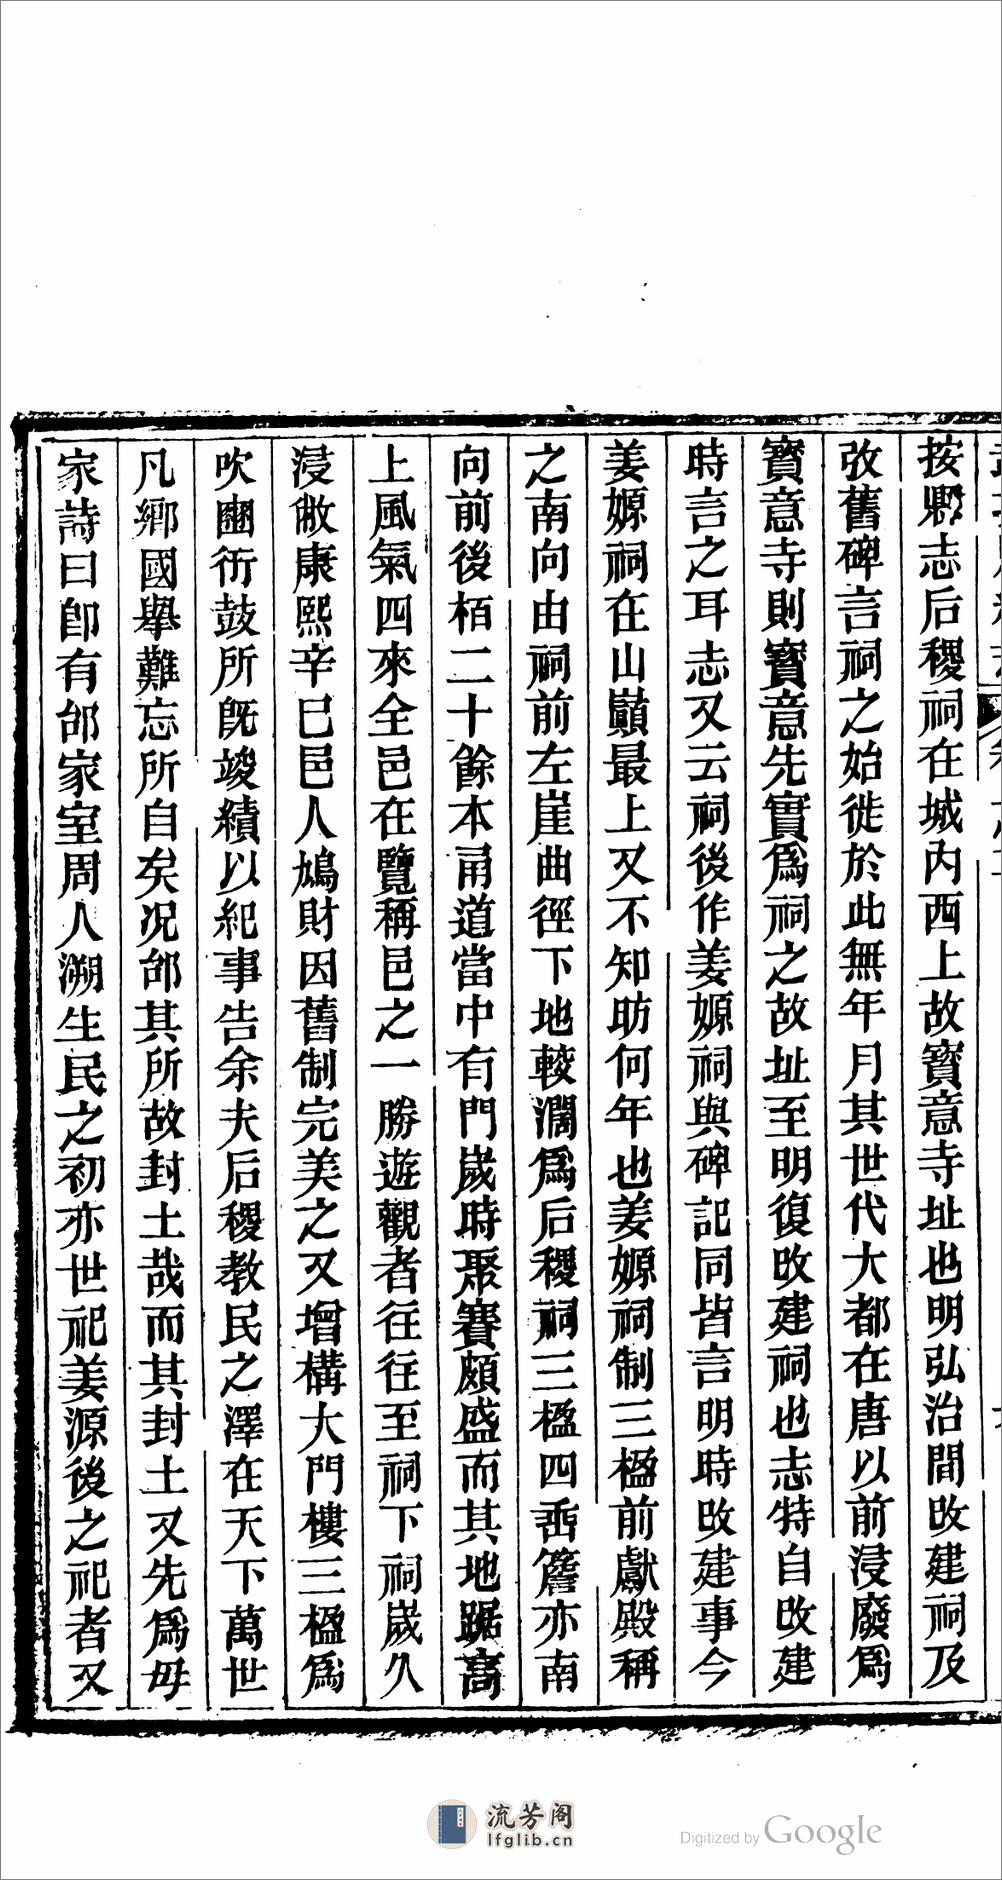 按縣志后稷祠在城内西上故寳意寺址也明弘治間改建祠及
攷舊碑言祠之始徙於此無年月其世代大都在唐以前浸廢爲
寳意寺則寳意先實爲祠之故址至明復改建祠也志特自改建
時言之耳志又云祠後作姜嫄祠與碑記同皆言明時改建事今
姜嫄祠在山巔最上又不知昉何年也姜嫄祠制三楹前獻殿稱
之南向由祠前左崖曲徑下地較濶爲后稷祠三楹四垂簷亦南
向前後栢二十餘本甬道當中有門歲時聚賽頗盛而其地踞高
上風氣四來全邑在覽稱邑之一勝遊觀者往往至祠下祠歲久
浸敝康熙辛巳邑人鳩財因舊制完美之又增構大門樓三楹爲
吹豳衎鼓所旣竣績以紀事告余夫后稷教民之澤在天下萬世
凡鄉國舉難忘所自矣况邰其所故封土哉而其封土又先爲毋
家詩曰卽有邰家室周人溯生民之初亦世祀姜源後之祀者又
流芳阁
lfglib.cn
Digitized by Google